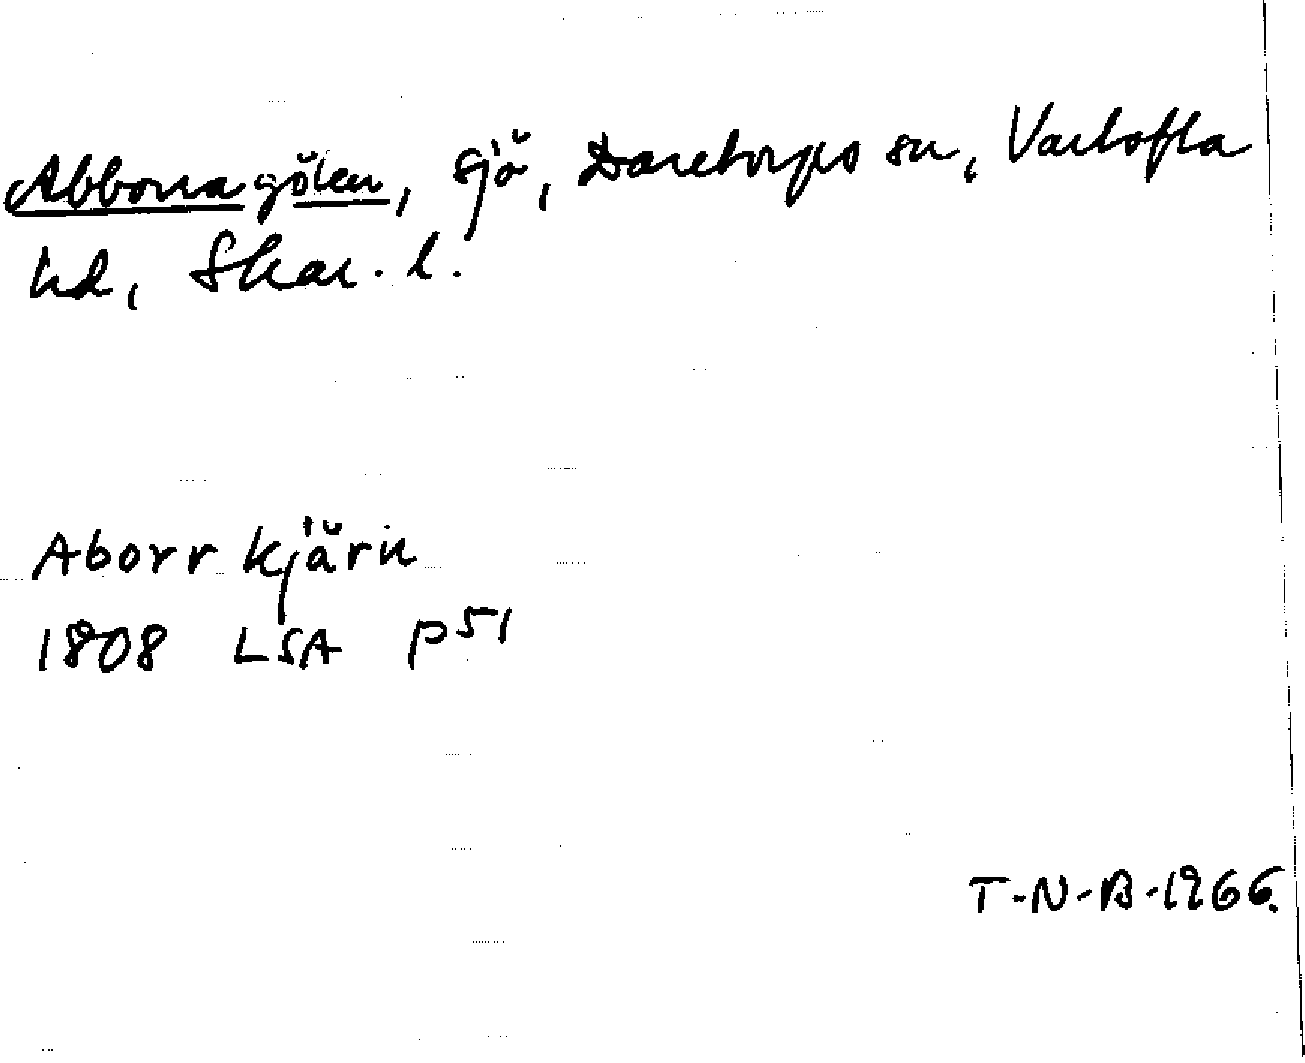 Abborragölen, sjö, Daretorps sn, Vartofta
hd, Skar. l.
Aborr kjärn
1808 LSA P51
T-N-B-1966.